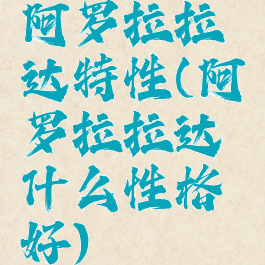 阿罗拉拉
达特性(阿
罗拉拉达
什么性格
好)